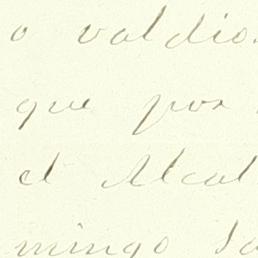 o valdio
que por
el Alcal
mingo Ja